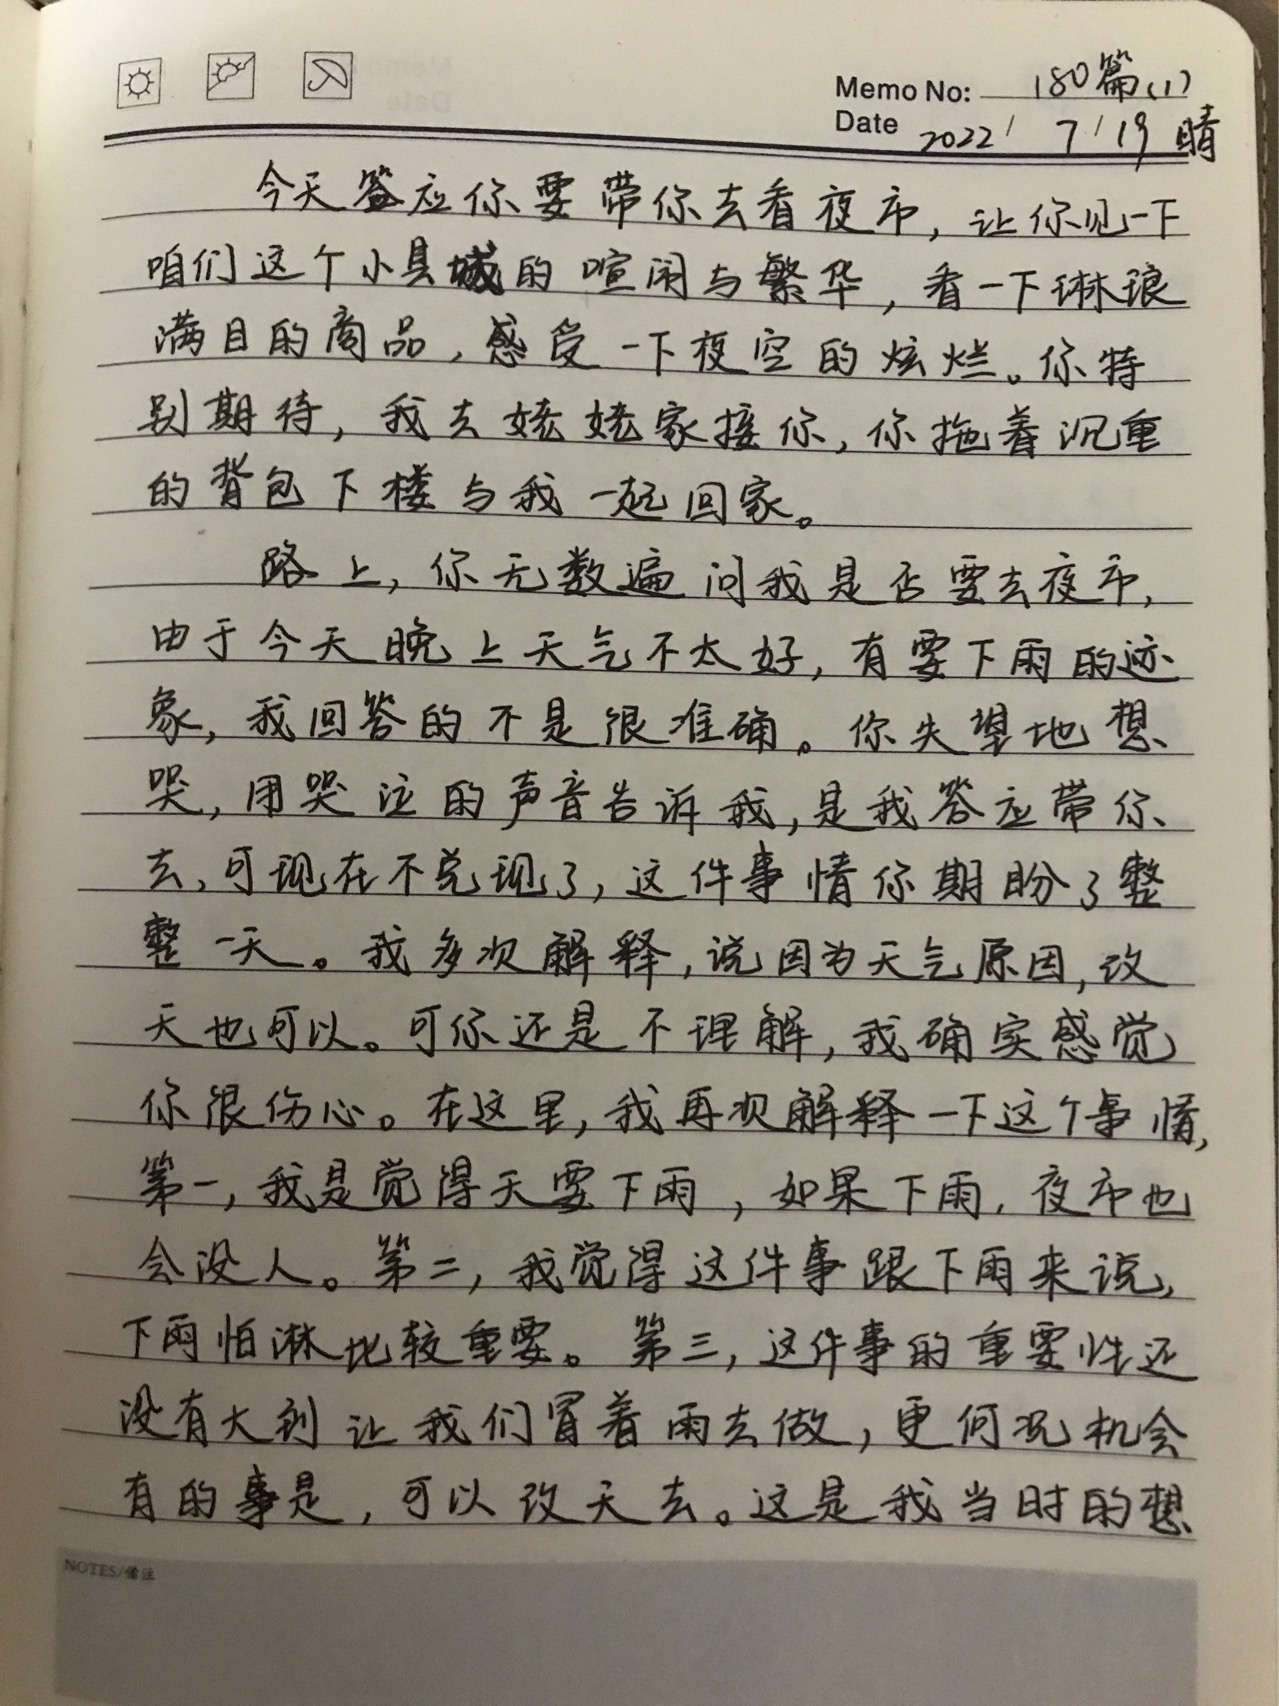 Memo No: 180篇(1)
Date 2022/ 7/19 晴
今天答应你要带你去看夜市，让你见一下
咱们这个小县城的喧闹与繁华，看一下琳琅
满目的商品，感受一下夜空的炫烂。你特
别期待，我去姥姥家接你，你拖着沉重
的背包下楼与我一起回家。
路上，你无数遍问我是否要去夜市，
由于今天晚上天气不太好，有要下雨的迹
象，我回答的不是很准确。你失望地想
哭，用哭泣的声音告诉我，是我答应带你
去，可现在不兑现了，这件事情你期盼了整
整一天。我多次解释，说因为天气原因，改
天也可以。可你还是不理解，我确实感觉
你很伤心。在这里，我再次解释一下这个事情，
第一，我是觉得天要下雨，如果下雨，夜市也
会没人。第二，我觉得这件事跟下雨来说，
下雨怕淋比较重要。第三，这件事的重要性还
没有大到让我们冒着雨去做，更何况机会
有的事是，可以改天去。这是我当时的想
NOTES/备注